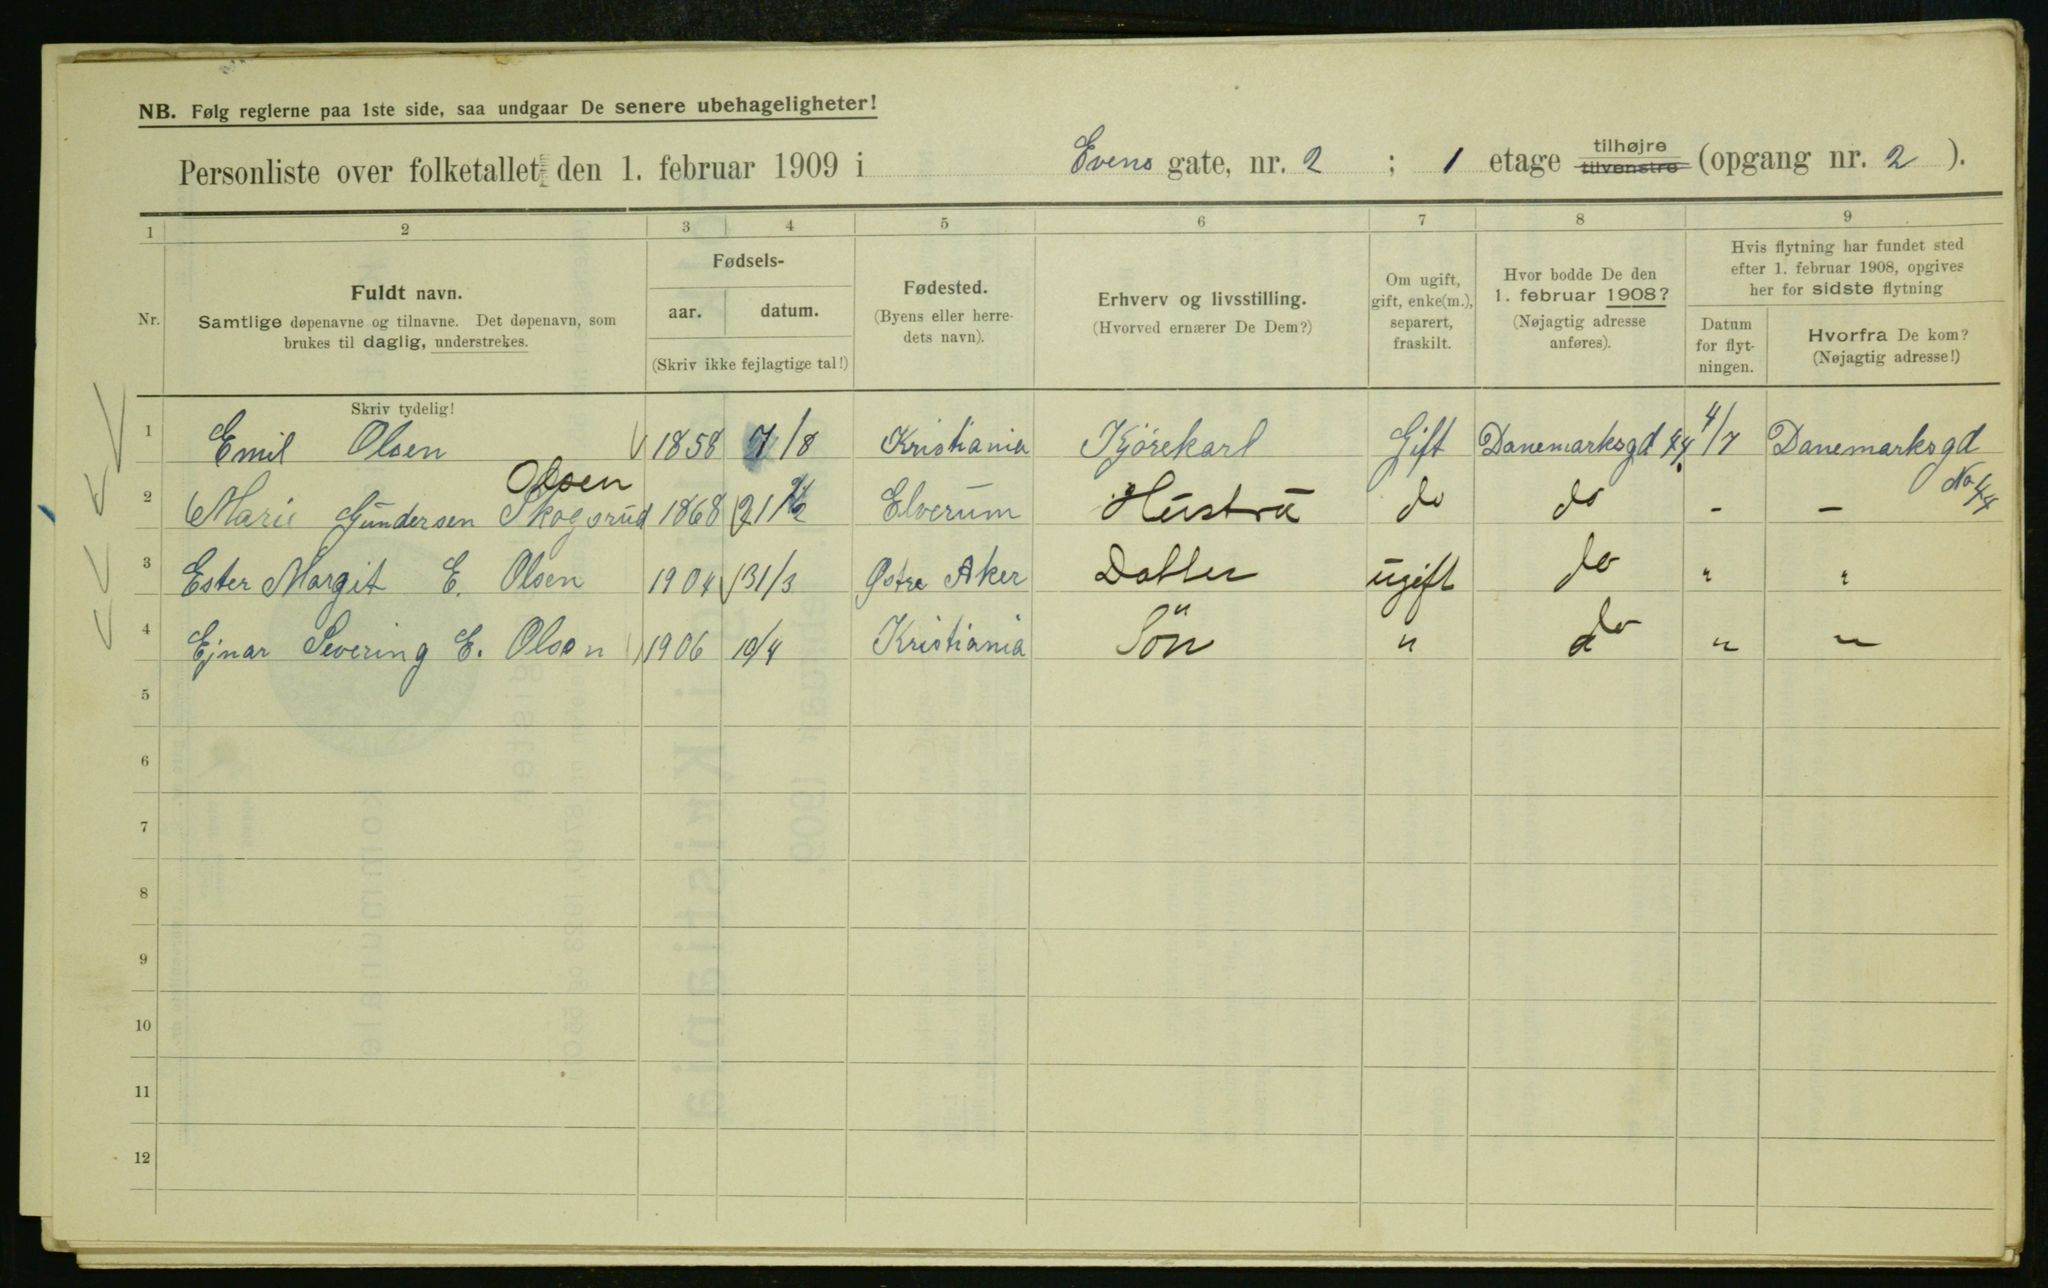 NB. Følg reglerne paa 1ste side, saa undgaar De senere ubehageligheter!
Personliste over folketallet den 1. februar 1909 i Evens gate, nr. 2 ; 1 etage tilhøjre tilvenstre (opgang nr. 2 ).
1 2 3 4 5 6 7 8 9
Nr.
Fuldt navn.
Samtlige døpenavne og tilnavne. Det døpenavn, som
brukes til daglig, understrekes.
Fødsels-
aar. datum.
(Skriv ikke fejlagtige tal!)
Fødested.
(Byens eller herre-
dets navn).
Erhverv og livsstilling.
(Hvorved ernærer De Dem?)
Om ugift,
gift, enke(m.),
separert,
fraskilt.
Hvor bodde De den
1. februar 1908?
(Nøjagtig adresse
anføres).
Hvis flytning har fundet sted
efter 1. februar 1908, opgives
her for sidste flytning
Datum
for flyt-
ningen.
Hvorfra De kom?
(Nøjagtig adresse!)
Skriv tydelig!
1 Emil Olsen 1858 7/8 Kristiania Kjørekarl Gift Danemarksgd 44 4/7 Danemarksgd No 44
Olsen
2 Marie Gundersen Skogsrud 1868 21 Elverum Hustru do do - -
3 Ester Margit E. Olsen 1904 31/3 Østre Aker Datter ugift do " "
4 Ejnar Severing E. Olson 1906 10/4 Kristiania Sön " do " "
5
6
7
8
9
10
11
12